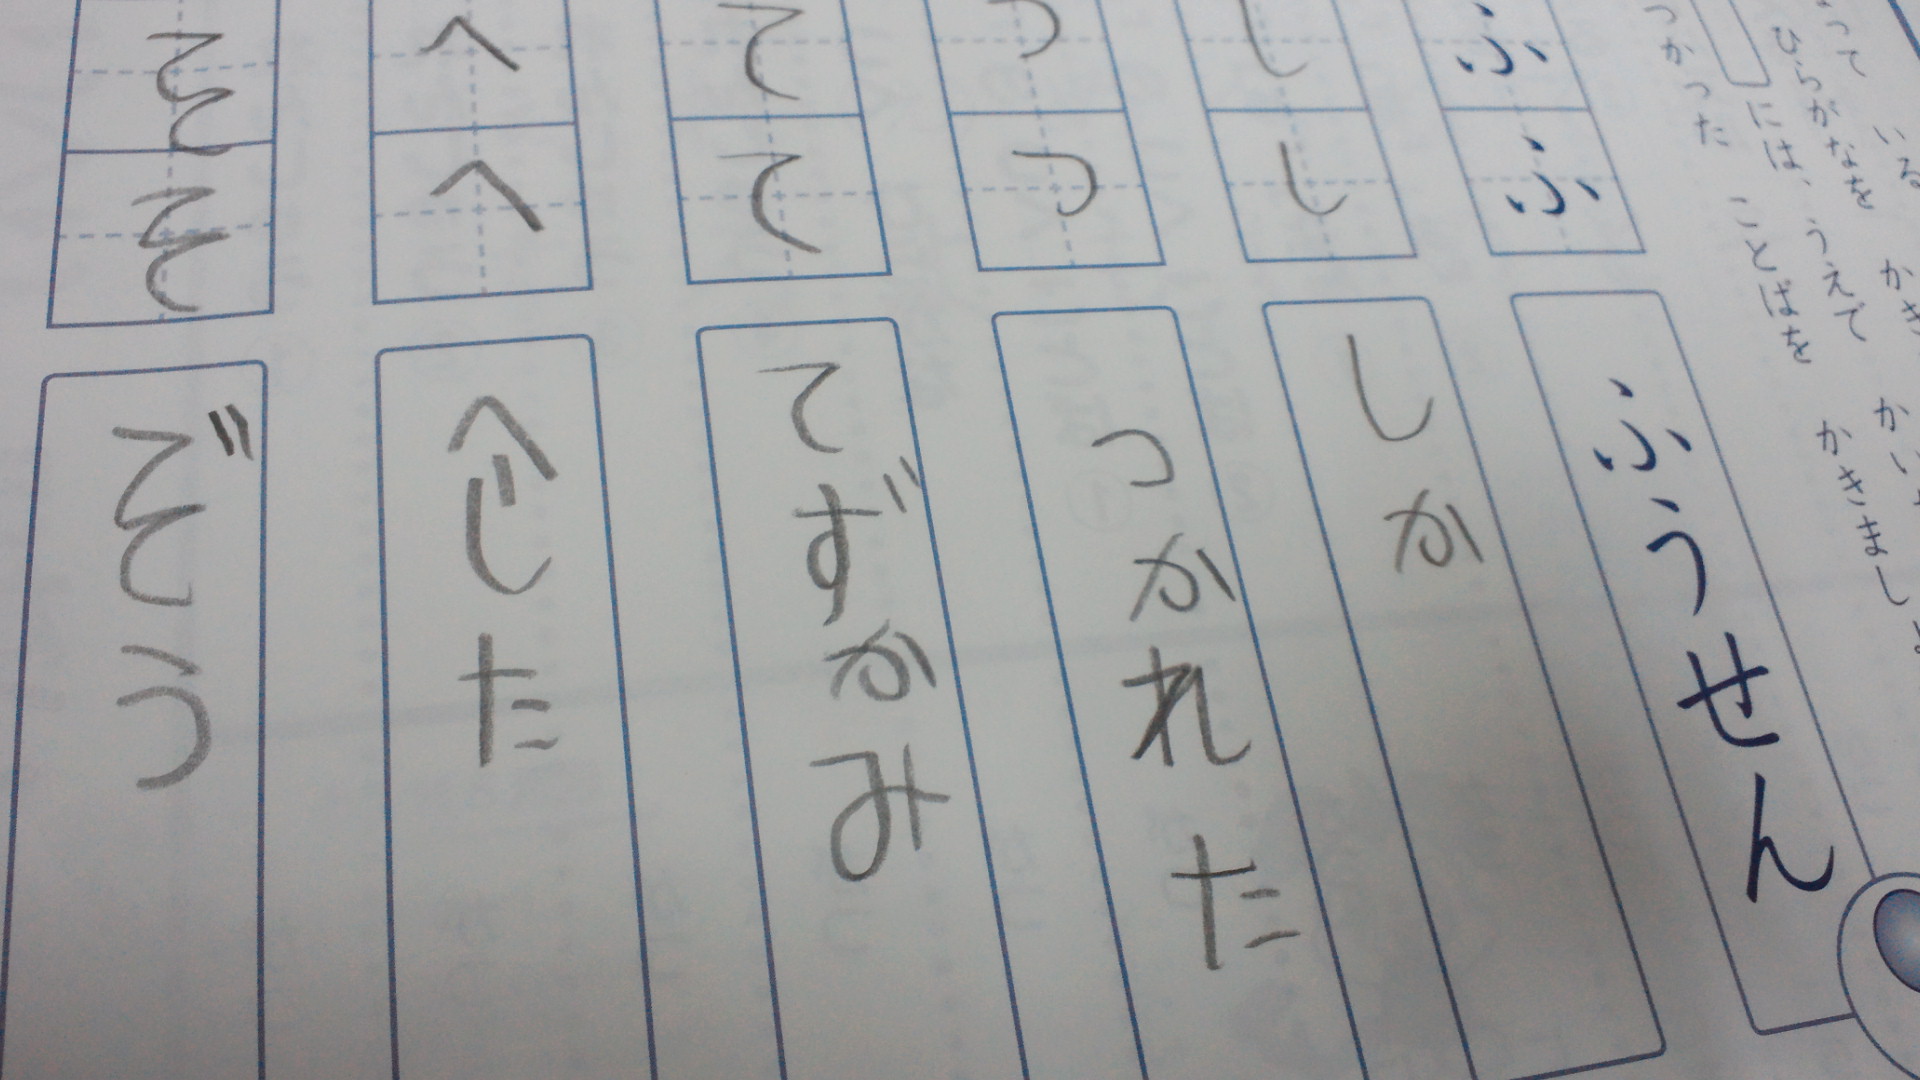 って いる
ひらがなを かき
には、うえで かい
つかった ことばを かきましょ
ふふ
ふうせん
しし
しか
つつ
つかれた
てて
てずかみ
へへ
へじた
そそ
ぞう